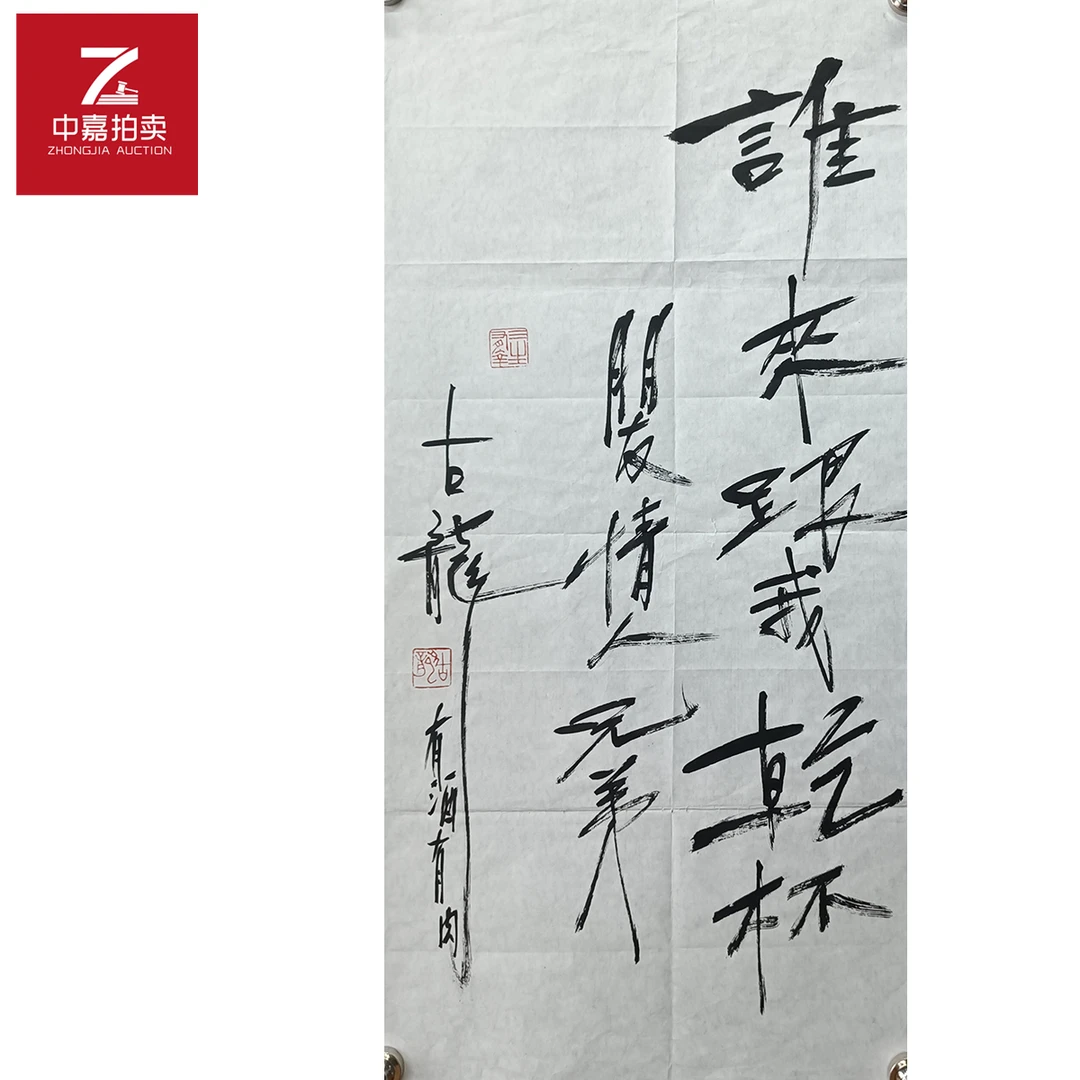 中嘉拍卖
ZHONGJIA AUCTION
誰来跟我乾杯
朋友情人兄弟
古龍
有酒有肉